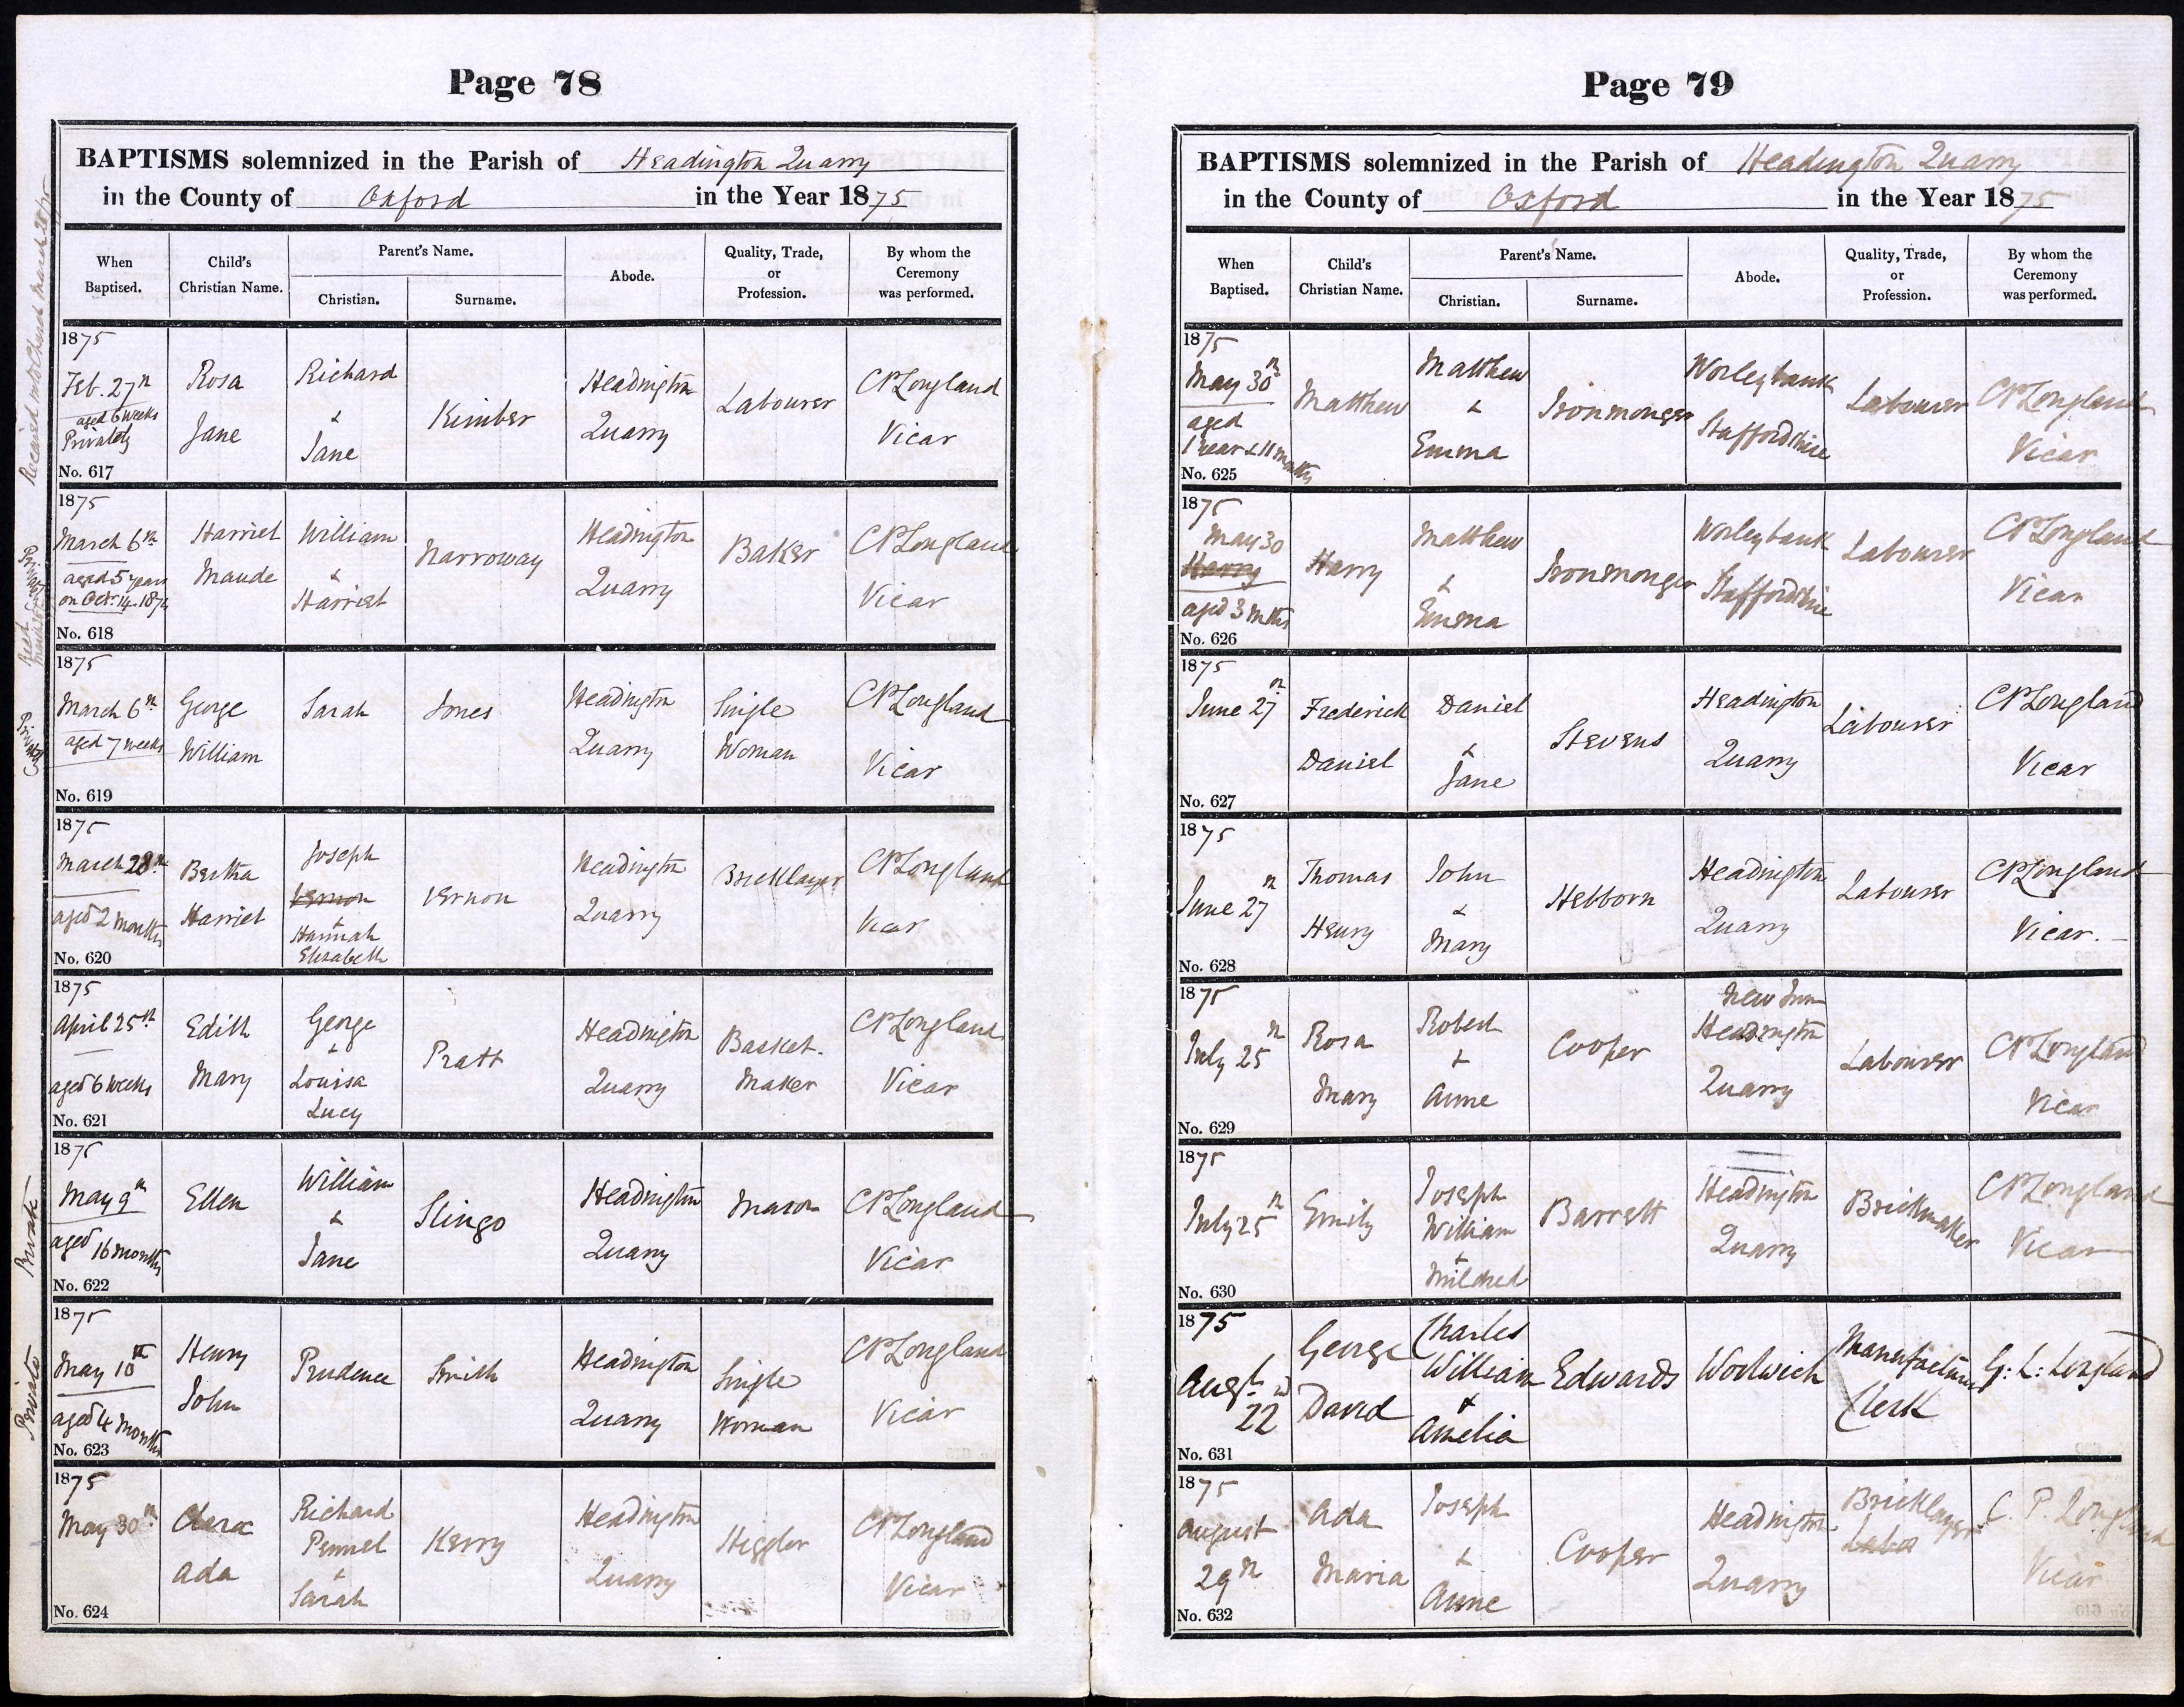 Page 78
BAPTISMS solemnized in the Parish of Headington Quarry
in the County of Oxford in the Year 1875
When Baptised.
Child's Christian Name.
Parent's Name.
Christian.
Surname.
Abode.
Quality, Trade, or Profession.
By whom the Ceremony was performed.
Received into Church March 28/75
1875
Feb. 27th
aged 6 weeks
Privately
No. 617
Rosa
Jane
Richard
&
Jane
Kimber
Headington
Quarry
Labourer
CP Longland
Vicar
1875
March 6th
aged 5 years
on Oct. 14. 1874
No. 618
Harriet
Maude
William
&
Harriet
Narroway
Headington
Quarry
Baker
CP Longland
Vicar
1875
March 6th
aged 7 weeks
No. 619
George
William
Sarah
Jones
Headington
Quarry
Single
Woman
CP Longland
Vicar
1875
March 28th
aged 2 months
No. 620
Bertha
Harriet
Joseph
Vernon
&
Hannah
Elizabeth
Vernon
Headington
Quarry
Bricklayer
CP Longland
Vicar
1875
April 25th
aged 6 weeks
No. 621
Edith
Mary
George
&
Louisa
Lucy
Pratt
Headington
Quarry
Basket.
Maker
CP Longland
Vicar
Private
1875
May 9th
aged 16 months
No. 622
Ellen
William
&
Jane
Stingo
Headington
Quarry
Mason
CP Longland
Vicar
Private
1875
May 10th
aged 4 months
No. 623
Henry
John
Prudence
Smith
Headington
Quarry
Single
Woman
CP Longland
Vicar
1875
May 30th
No. 624
Clara
Ada
Richard
Pennel
&
Sarah
Kerry
Headington
Quarry
Higgler
CP Longland
Vicar
Page 79
BAPTISMS solemnized in the Parish of Headington Quarry
in the County of Oxford in the Year 1875
When Baptised.
Child's Christian Name.
Parent's Name.
Christian.
Surname.
Abode.
Quality, Trade, or Profession.
By whom the Ceremony was performed.
1875
May 30th
aged
1 year & 11 months
No. 625
Matthew
Matthew
&
Emma
Ironmonger
Worleybank
Staffordshire
Labourer
CP Longland
Vicar
1875
May 30
Harry
aged 3 mths
No. 626
Harry
Matthew
&
Emma
Ironmonger
Worleybank
Staffordshire
Labourer
CP Longland
Vicar
1875
June 27th
No. 627
Frederick
Daniel
Daniel
&
Jane
Stevens
Headington
Quarry
Labourer
CP Longland
Vicar
1875
June 27th
No. 628
Thomas
Henry
John
&
Mary
Hebborn
Headington
Quarry
Labourer
CP Longland
Vicar.
1875
July 25th
No. 629
Rosa
Mary
Robert
&
Anne
Cooper
New Inn
Headington
Quarry
Labourer
CP Longland
Vicar
1875
July 25th
No. 630
Emily
Joseph
William
&
Mildred
Barrett
Headington
Quarry
Brickmaker
CP Longland
Vicar
1875
Augst
22
No. 631
George
David
Charles
William
&
Amelia
Edwards
Woolwich
Clerk
G: L: Longland
1875
August
29th
No. 632
Ada
Maria
Joseph
&
Anne
Cooper
Headington
Quarry
Bricklayer
C. P. Longland
Vicar